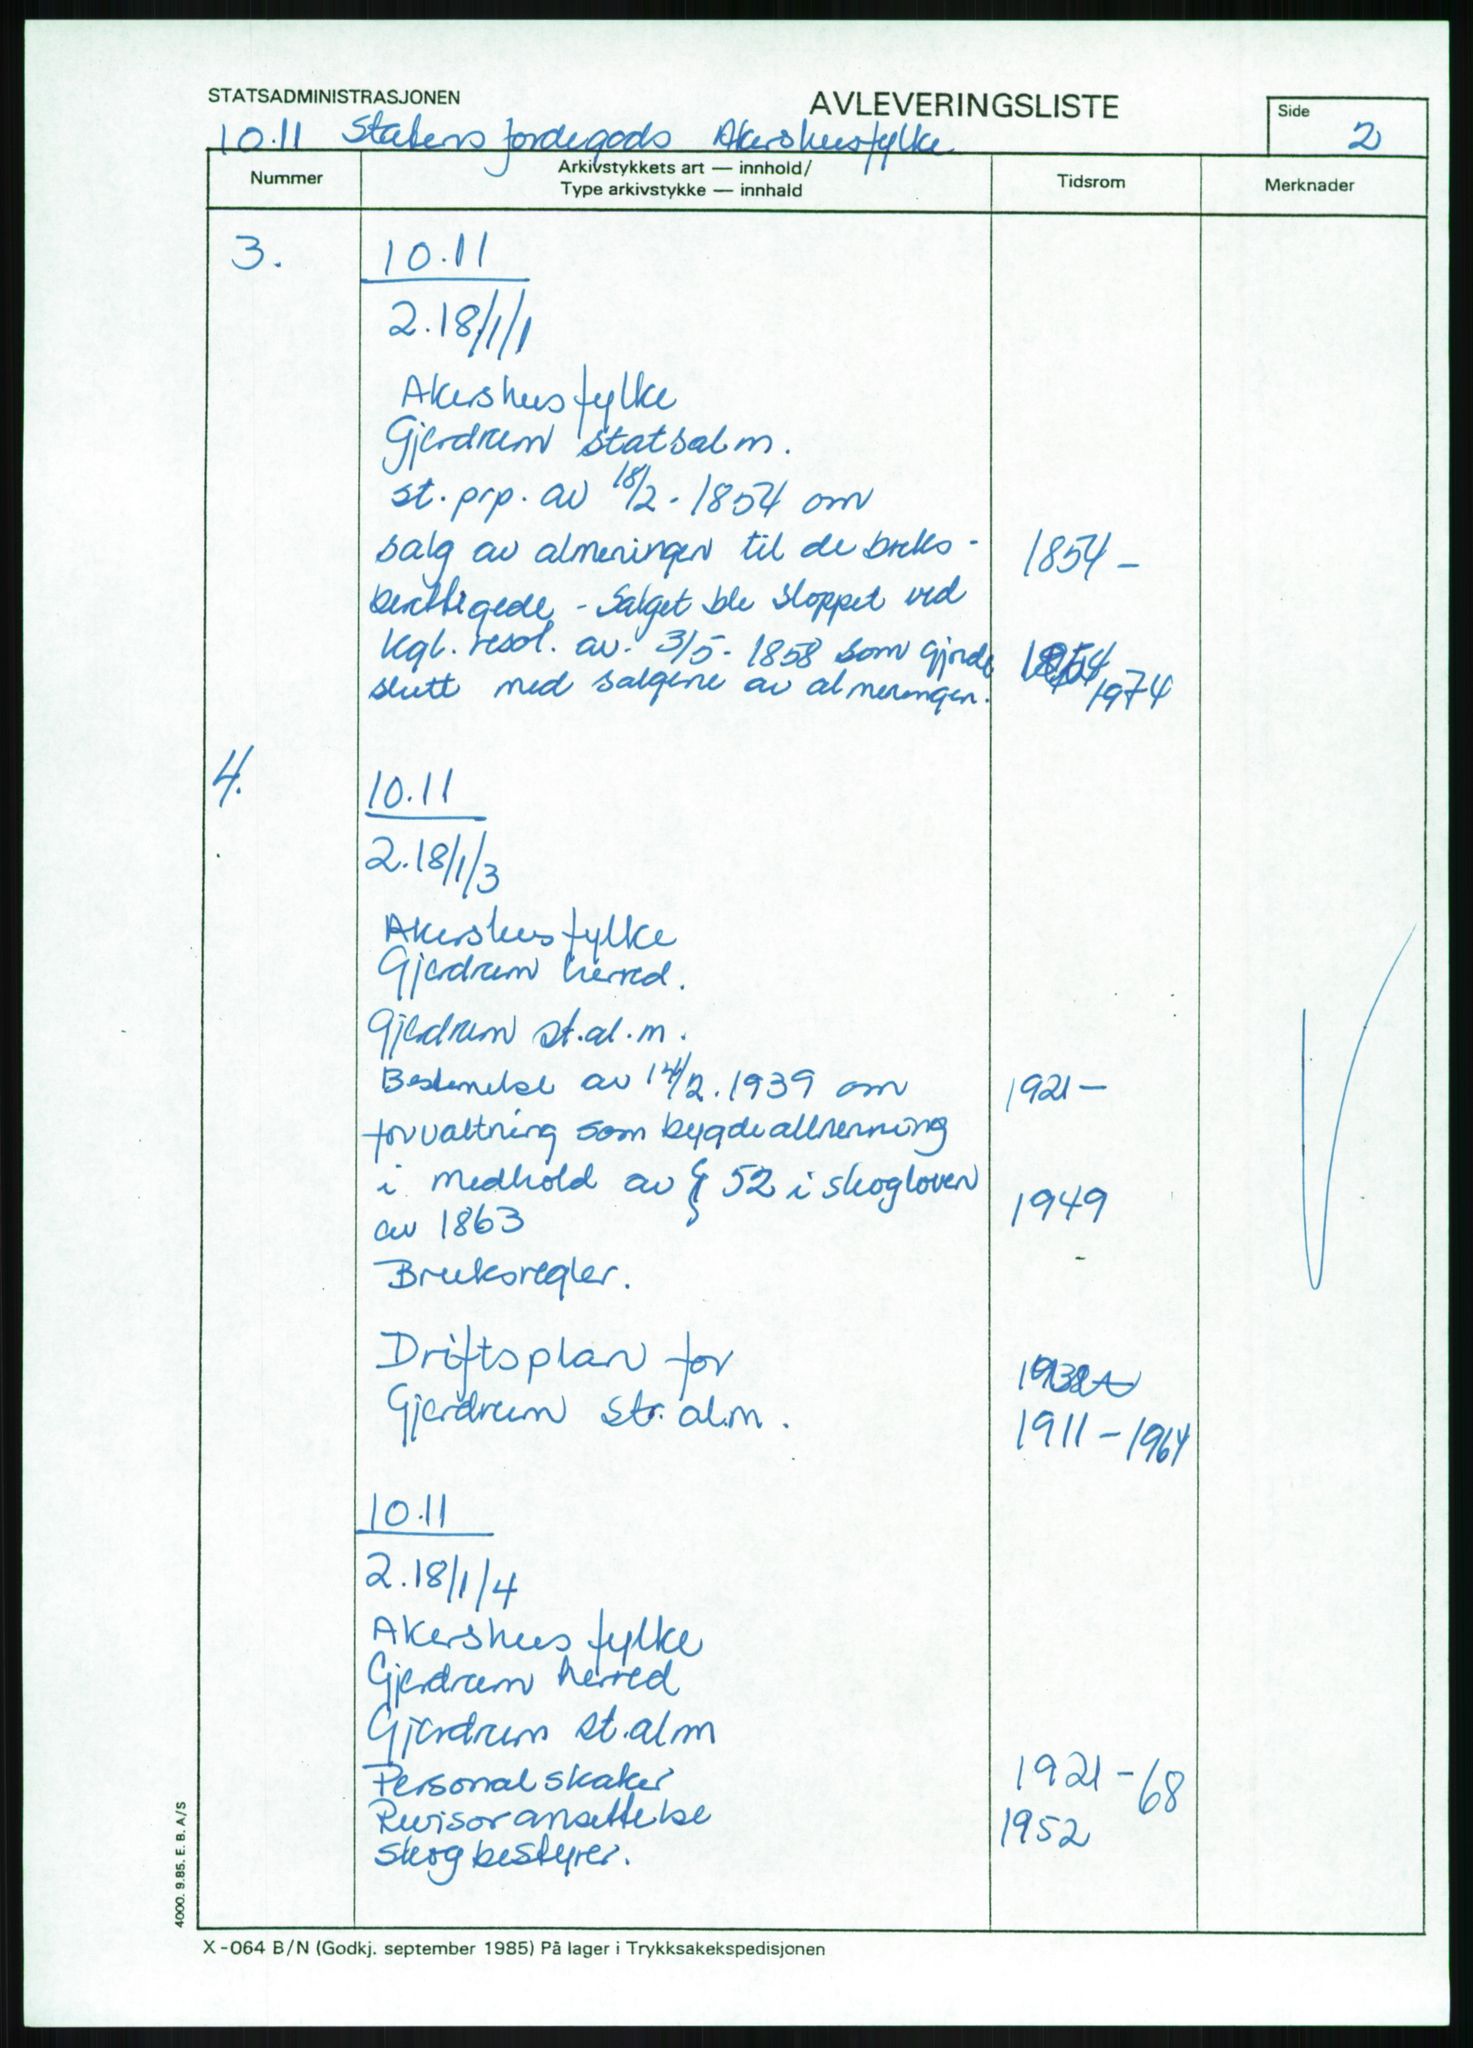 STATSADMINISTRASJONEN
AVLEVERINGSLISTE
Side
2
10.11 Statens jordegods Akershus fylke
Nummer
Arkivstykkets art — innhold/
Type arkivstykke — innhald
Tidsrom
Merknader
3.
10.11
2.18/1/1
Akershus fylke
Gjerdrum statsalm.
st. prp. av 18/2 - 1854 om
salg av almeningen til de bruks- 1854 -
berettigede - Salget ble stoppet ved
kgl. resol. av. 3/5 - 1858 som gjorde
slutt med salgene av almeningen. 1974
4.
10.11
2.18/1/3
Akershus fylke
Gjerdrum herred.
Gjerdrum st.al.m.
Bestemelse av 14/2.1939 om 1921 -
forvaltning som bygdeallmenning
i medhold av § 52 i skogloven 1949
av 1863
Bruksregler.
Driftsplan for 1938
Gjerdrum str. alm. 1911 - 1964
10.11
2.18/1/4
Akershus fylke
Gjerdrum herred
Gjerdrum st.alm
Personalsaker 1921 - 68
Revisoransettelse 1952
skogbestyrer.
4000. 9.85. E. B. A/S
X-064 B/N (Godkj. september 1985) På lager i Trykksakekspedisjonen